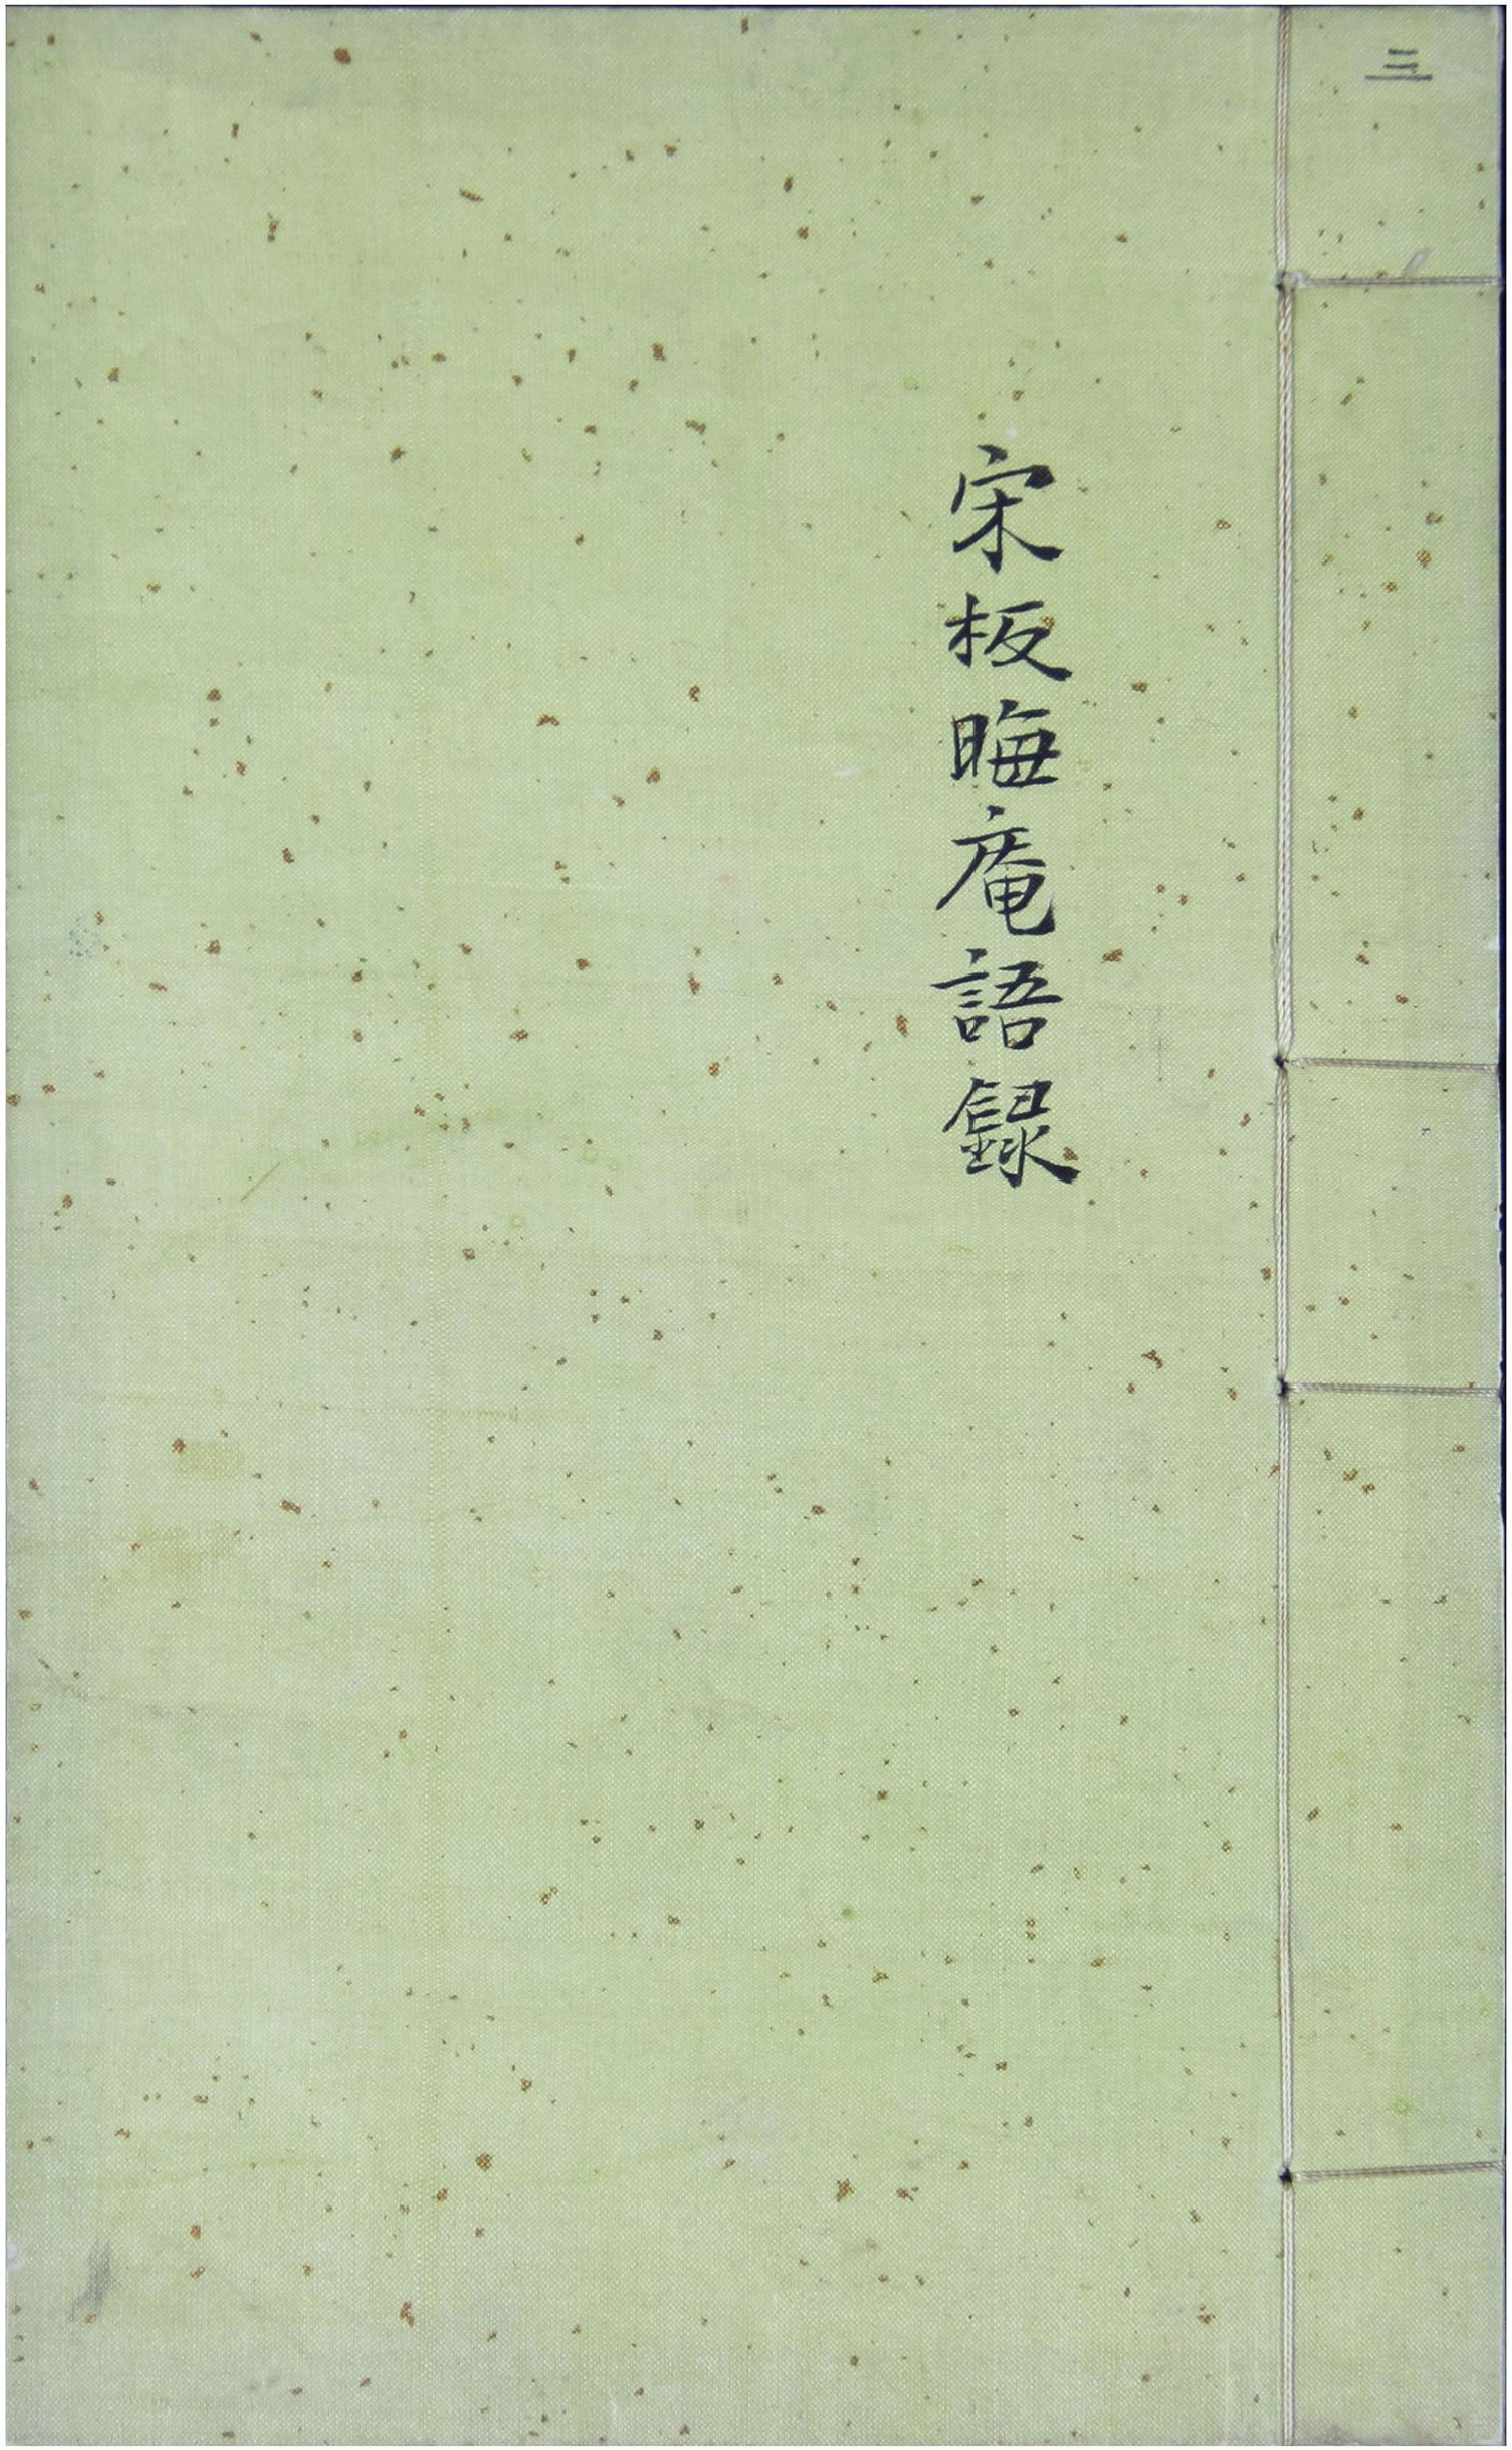 三
宋板晦庵語録